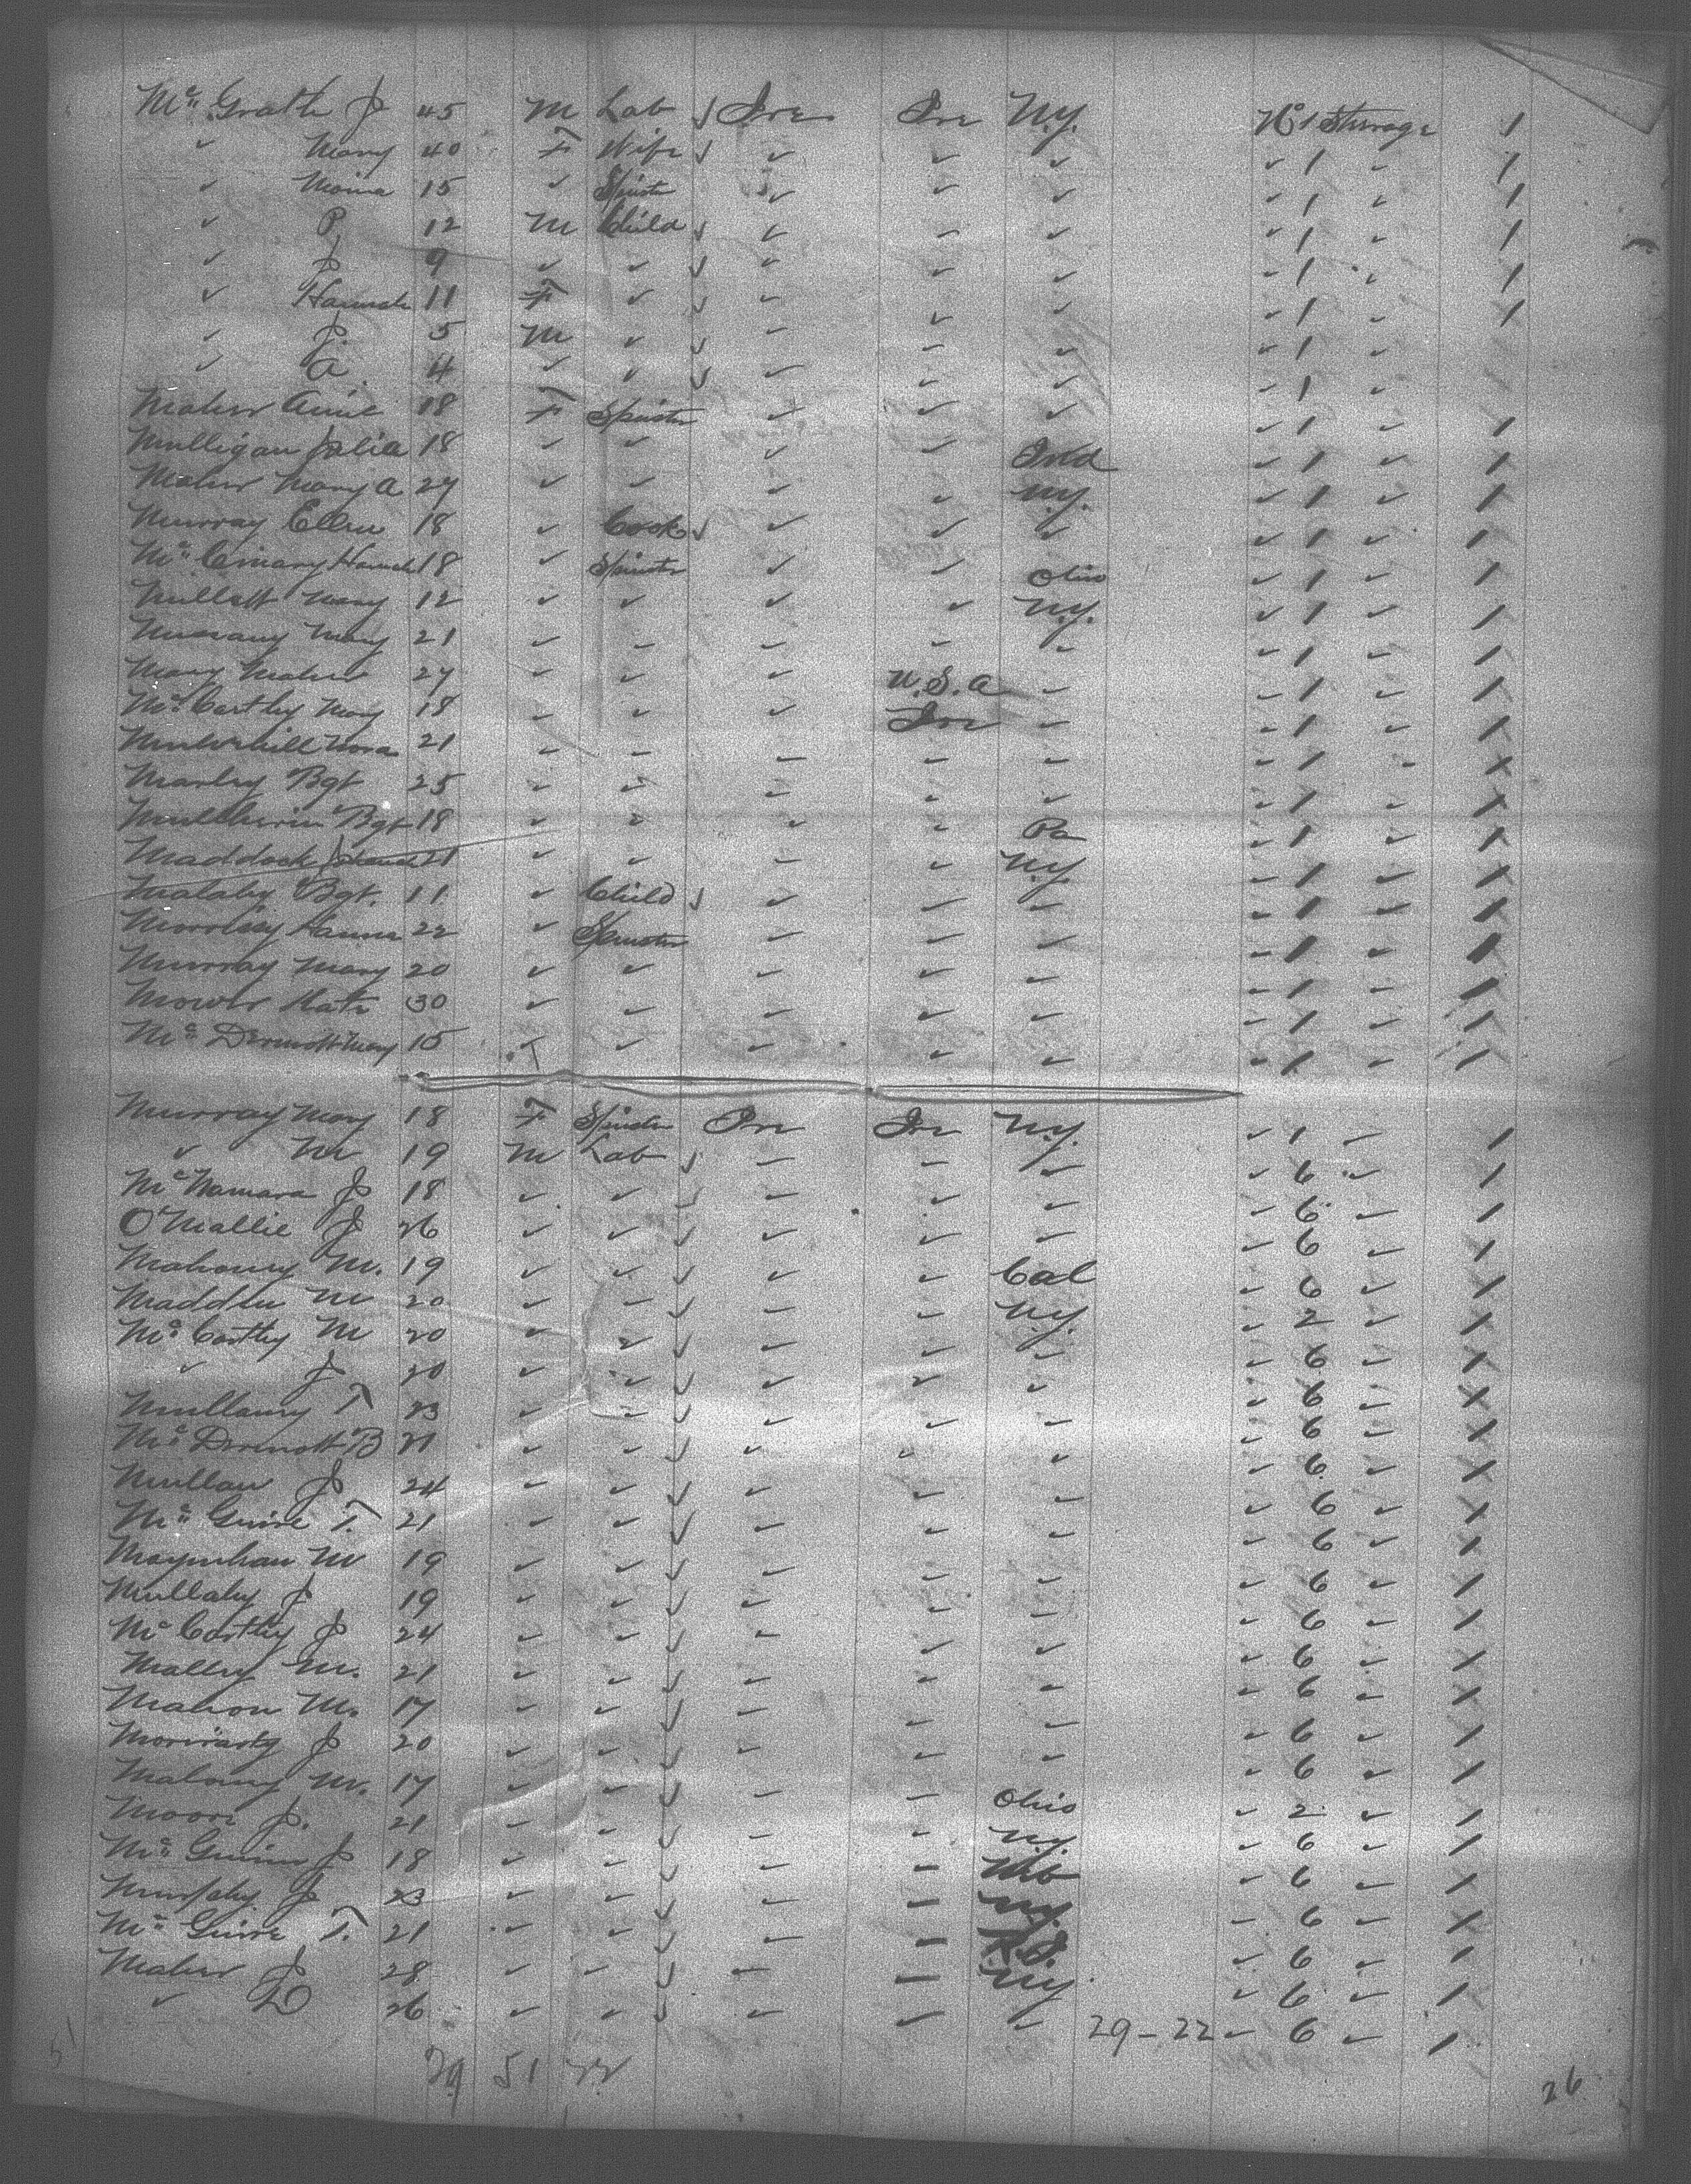 Mc Grath J 45 M Lab ✓ Ire Ire N.Y. No 1 Sterage 1
✓ Mary 40 F Wife ✓ ✓ ✓ ✓ ✓ 1 ✓ 1
✓ 15 ✓ Spinster ✓ ✓ ✓ ✓ 1 ✓ 1
✓ P 12 M Child ✓ ✓ ✓ ✓ ✓ 1 ✓ 1
✓ J 9 ✓ ✓ ✓ ✓ ✓ ✓ ✓ 1 ✓ 1
✓ Hannah 11 F ✓ ✓ ✓ ✓ ✓ ✓ 1 ✓ 1
✓ J. 5 M ✓ ✓ ✓ ✓ ✓ ✓ 1 ✓
✓ A 4 ✓ ✓ ✓ ✓ ✓ ✓ ✓ 1 ✓
Maher Annie 18 F Spinster ✓ ✓ ✓ ✓ 1 ✓ 1
Mulligan Julia 18 ✓ ✓ ✓ ✓ Ind ✓ 1 ✓ 1
Maher Mary A 27 ✓ ✓ ✓ ✓ N.Y. ✓ 1 ✓ 1
Murray Ellen 18 ✓ Cook ✓ ✓ ✓ ✓ ✓ 1 ✓ 1
Hannah 18 ✓ Spinster ✓ ✓ Ohio ✓ 1 ✓ 1
Millett Mary 12 ✓ ✓ ✓ ✓ N.Y. ✓ 1 ✓ 1
Mary 21 ✓ ✓ ✓ ✓ ✓ ✓ 1 ✓ 1
Mary Maher 27 ✓ ✓ ✓ U.S.A ✓ ✓ 1 ✓ 1
Mc Carthy Mary 18 ✓ ✓ ✓ Ire ✓ ✓ 1 ✓ 1
Mulvihill Nora 21 ✓ ✓ ✓ ✓ ✓ ✓ 1 ✓ 1
Manley Bgt 25 ✓ ✓ ✓ ✓ ✓ ✓ 1 ✓ 1
Bgt 18 ✓ ✓ ✓ ✓ Pa ✓ 1 ✓ 1
Maddock Johanna 21 ✓ ✓ ✓ ✓ N.Y. ✓ 1 ✓ 1
Bgt. 11 ✓ Child ✓ ✓ ✓ ✓ ✓ 1 ✓ 1
Morrissy Hanna 22 ✓ Spinster ✓ ✓ ✓ ✓ 1 ✓ 1
Murray Mary 20 ✓ ✓ ✓ ✓ ✓ ✓ 1 ✓ 1
Mower Kate 30 ✓ ✓ ✓ ✓ ✓ ✓ 1 ✓ 1
Mc Dermott Mary 15 ✓ ✓ ✓ ✓ ✓ ✓ 1 ✓ 1
Murray Mary 18 F Spinster Ire Ire N.Y. ✓ 1 ✓ 1
✓ M 19 M Lab ✓ ✓ ✓ ✓ ✓ 6 ✓ 1
Mc Namara J 18 ✓ ✓ ✓ ✓ ✓ ✓ ✓ 6 ✓ 1
O'Mallie J 26 ✓ ✓ ✓ ✓ ✓ ✓ ✓ 6 ✓ 1
Mahoney M. 19 ✓ ✓ ✓ ✓ ✓ Cal ✓ 6 ✓ 1
Madden M 20 ✓ ✓ ✓ ✓ ✓ N.Y. ✓ 2 ✓ 1
Mc Carthy M 20 ✓ ✓ ✓ ✓ ✓ ✓ ✓ 6 ✓ 1
✓ J 20 ✓ ✓ ✓ ✓ ✓ ✓ ✓ 6 ✓ 1
Mullany T 23 ✓ ✓ ✓ ✓ ✓ ✓ ✓ 6 ✓ 1
Mc Dermott B 21 ✓ ✓ ✓ ✓ ✓ ✓ ✓ 6 ✓ 1
Mullan J 24 ✓ ✓ ✓ ✓ ✓ ✓ ✓ 6 ✓ 1
Mc Guire T. 21 ✓ ✓ ✓ ✓ ✓ ✓ ✓ 6 ✓ 1
Moynihan M 19 ✓ ✓ ✓ ✓ ✓ ✓ ✓ 6 ✓ 1
Mullaly J 19 ✓ ✓ ✓ ✓ ✓ ✓ ✓ 6 ✓ 1
Mc Carthy J 24 ✓ ✓ ✓ ✓ ✓ ✓ ✓ 6 ✓ 1
Malley M. 21 ✓ ✓ ✓ ✓ ✓ ✓ ✓ 6 ✓ 1
Mahon M. 17 ✓ ✓ ✓ ✓ ✓ ✓ ✓ 6 ✓ 1
Moriarty J 20 ✓ ✓ ✓ ✓ ✓ ✓ ✓ 6 ✓ 1
Malony M. 17 ✓ ✓ ✓ ✓ ✓ Ohio ✓ 2 ✓ 1
Moore J. 21 ✓ ✓ ✓ ✓ ✓ N.Y. ✓ 6 ✓ 1
J 18 ✓ ✓ ✓ ✓ ✓ Neb ✓ 6 ✓ 1
Murphy J 23 ✓ ✓ ✓ ✓ ✓ N.Y. ✓ 6 ✓ 1
Mc Guire T. 21 ✓ ✓ ✓ ✓ ✓ R.I. ✓ 6 ✓ 1
Maher J 28 ✓ ✓ ✓ ✓ ✓ N.Y. ✓ 6 ✓ 1
✓ D 26 ✓ ✓ ✓ ✓ ✓ ✓ 29-22 ✓ 6 ✓ 1
29 51 22
26